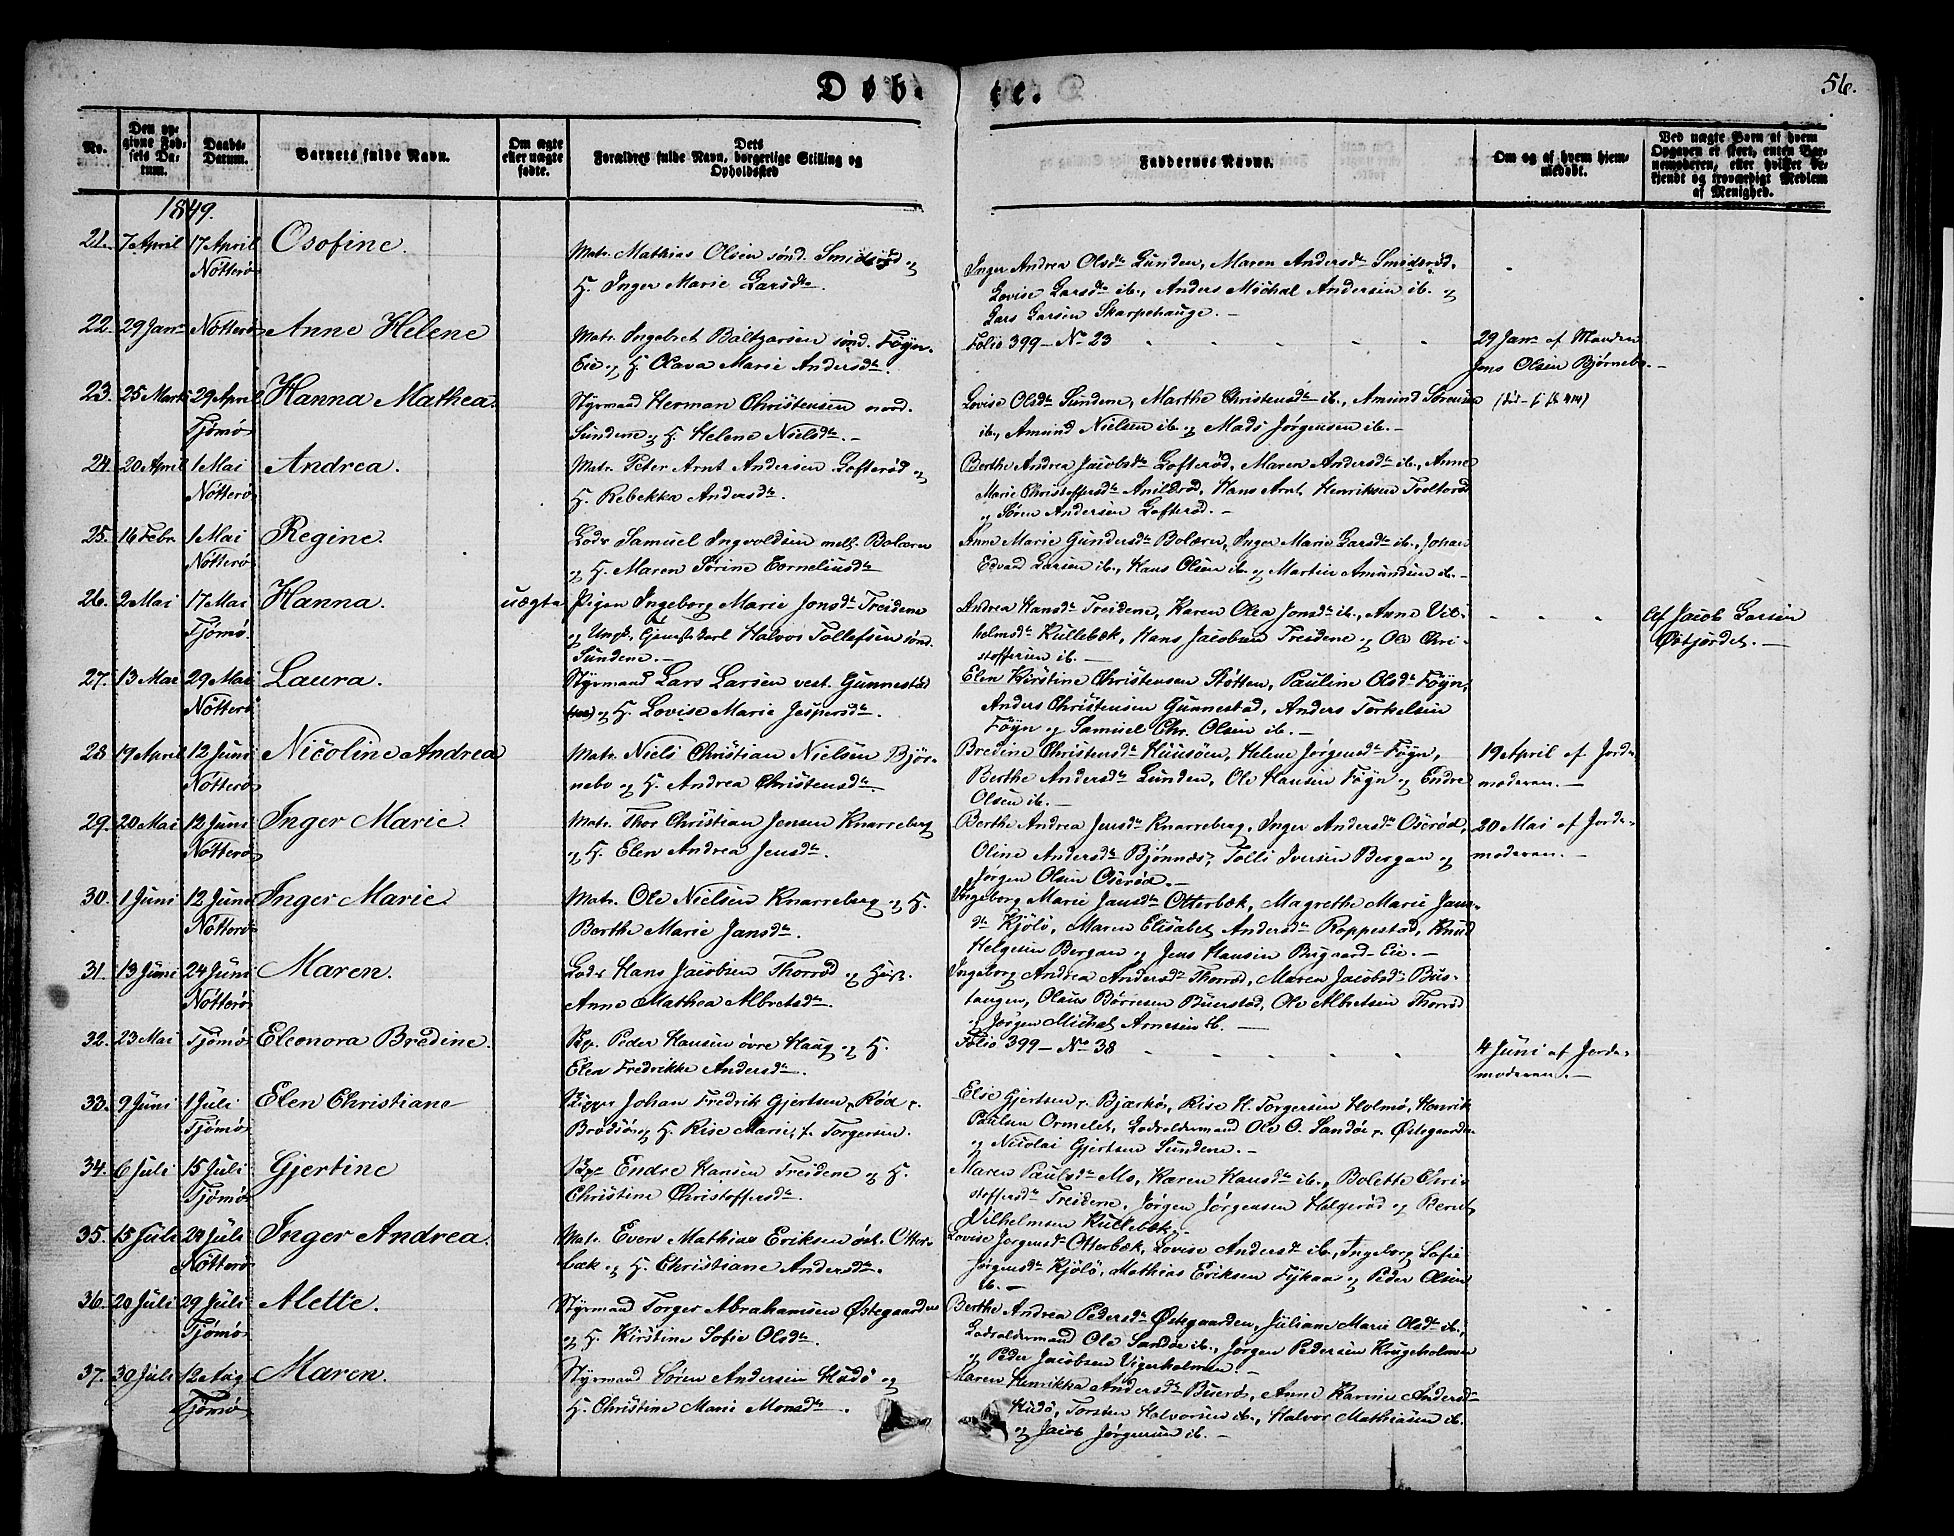 Døbte.
56.
No.
Den opgivne Fødsels Datum.
Daabs-Datum.
Barnets fulde Navn.
Om ægte eller uægte fødte.
Dets Forældres fulde Navn, borgerlige Stilling og Opholdssted
Faddernes Navne.
Om og af hvem hjemmedøbt.
Ved uægte Børn af hvem Opgaven er skeet, enten Barnemoderen, eller hvilket bekjendt og troværdigt Medlem af Menighed.
1849.
21. 7 April 17 April Nötterö Osofine. Matr. Mathias Olsen sönd. Smidsröd og
H. Inger Marie Larsdtr.
Inger Andrea Olsdtr Lunden, Maren Andersdtr Smidsröd,
Lovise Larsdtr ib., Anders Michal Andersen ib. og
Lars Larsen Skarpehauge.
22. 29 Janr Nötterö Anne Helene Matr. Ingebret Baltzarsen sönd. Föyn-
Eie og H. Olava Marie Andersdtr.
Folio 399 - No 23
29 Janr af Manden
Jens Olsen Björnebo.
23. 25 Marts 29 April Tjömö Hanna Mathea. Styrmand Herman Christensen nord.
Sundene og H. Helene Nielsdtr.
Lovise Olsdtr Sundene, Marthe Christensdtr ib., Amund Sörensen
ib., Amund Nielsen ib. og Mads Jörgensen ib.
24. 20 April 1 Mai Nötterö Andrea. Matr. Peter Arnt Andersen Lofteröd og
H. Rebekka Andersdtr.
Berthe Andrea Jacobsdtr Lofteröd, Maren Andersdtr ib., Anne
Marie Christoffersdtr, Hans Arnt Henriksen
og Sören Andersen Lofteröd.
25. 16 Febr. 1 Mai Nötterö Regine. Lods Samuel Ingvoldsen mell. Bolæren
og H. Maren Sörine Corneliusdtr
Anne Marie Gundersdtr Bolæren, Inger Marie Larsdtr ib., Johan
Edvard Larsen ib., Hans Olsen ib. og Martin Amundsen ib.
26. 2 Mai 17 Mai Tjömö. Hanna. uægte Pigen Ingeborg Marie Jonsdtr Treidene
og Ungk. Halvor Tollefsen sönd.
Sundene.
Andrea Hansdtr Treidene, Karen Olea Jonsdtr ib., Anne Vil-
helmsdtr Kullebæk, Hans Jacobsen Treidene og Ole Chri-
stoffersen ib.
Af Jacob Larsen
Østjordet.
27. 13 Mai 29 Mai Nötterö Laura. Styrmand Lars Larsen vest. Gunnestad
og H. Lovise Marie Jespersdtr.
Elen Kirstine Christensen Stötten, Pauline Olsdtr Föyn,
Anders Christensen Gunnestad, Anders Torkelsen
Föyn og Samuel Chr. Olsen ib.
28. 19 April 12 Juni Nötterö Nicoline Andrea Matr. Niels Christian Nielsen Björ-
nebo og H. Andrea Christensdtr.
Bredine Christensdtr Huusöen, Helene Jörgensdtr Föyn,
Berthe Andersdtr Lunden, Ole Hansen Föyn og Endre
Olsen ib.
19 April af Jorde-
moderen.
29. 20 Mai 12 Juni Nötterö Inger Marie. Matr. Thor Christian Jensen Knarreberg
og H. Elen Andrea Jensdtr.
Berthe Andrea Jensdtr Knarreberg, Inger Andersdtr Oseröd,
Oline Andersdtr Björnnæs, Tolli Iversen Bergan og
Jörgen Olsen Oseröd.
20 Mai af Jorde-
moderen.
30. 1 Juni 12 Juni Nötterö Inger Marie Matr. Ole Nielsen Knarreberg og H.
Berthe Marie Jansdtr.
Ingeborg Marie Jansdtr Otterbæk, Magrethe Marie Jans-
dtr Kjölö, Maren Elisabet Andersdtr Roppestad, Knud
Helgesen Bergan og Jens Hansen Eie.
31. 13 Juni 24 Juni Nötterö Maren. Lods Hans Jacobsen Thorröd og Hust.
Anne Mathea Albretsdtr.
Ingeborg Andrea Andersdtr Thorröd, Maren Jacobsdtr Bus-
tangen, Olaus Börresen Buerstad, Ole Albretsen Thorröd
og Jörgen Michal Arnesen ib.
32. 23 Mai Tjömö Eleonora Bredine. Skp. Peder Hansen övre Haug og H.
Elen Fredrikke Andersdtr.
Folio 399 - No 38
4 Juni af Jorde-
moderen.
33. 9 Juni 1 Juli Tjömö Elen Christiane Skipper Johan Fredrik Gjertsen, Röd p.
Brödsö og H. Rise Marie, f. Torgersen.
Else Gjertsen p. Bjærkö, Rise H. Torgersen Holmö, Henrik
Paulsen Ormelet, Lodsoldermand Ole O. Sandöe p. Østegaarden
og Nicolai Gjertsen Sundene.
34. 6 Juli 15 Juli Tjömö Gjertine Skp. Endre Hansen Treidene og H.
Christine Christoffersdtr.
Maren Paulsdtr Mo, Karen Hansdtr ib., Bolette Chri-
stoffersdtr Treidene, Jörgen Jörgensen Holgeröd og Bernt
Vilhelmsen Kullebæk.
35. 15 Juli 24 Juli Nötterö Inger Andrea. Matr. Even Mathias Eriksen öst. Otter-
bæk og H. Christiane Andersdtr.
Lovise Jörgensdtr Otterbæk, Lovise Andersdtr ib., Ingeborg Sofie
Jörgensdtr Kjölö, Mathias Eriksen og Peder Olsen
ib.
36. 20 Juli 29 Juli Tjömö Alette. Styrmand Torger Abrahamsen Østegaarden
og H. Kirstine Sofie Olsdtr.
Berthe Andrea Pedersdtr Østegaarden, Juliane Marie Olsdtr ib.,
Lodsoldermand Ole Sandöe ib., Jörgen Pedersen Krugeholmen
og Peder Jacobsen Vigerholmen.
37. 30 Juli 12 Aug Tjömö Maren. Styrmand Sören Andersen Hudö og
H. Christine Marie Monsdtr.
Maren Henrikka Andersdtr Bueröe, Anne Karine Andersdtr
Hudö, Torsten Halvorsen ib., Halvor Mathiasen ib.
og Jacob Jörgensen ib.